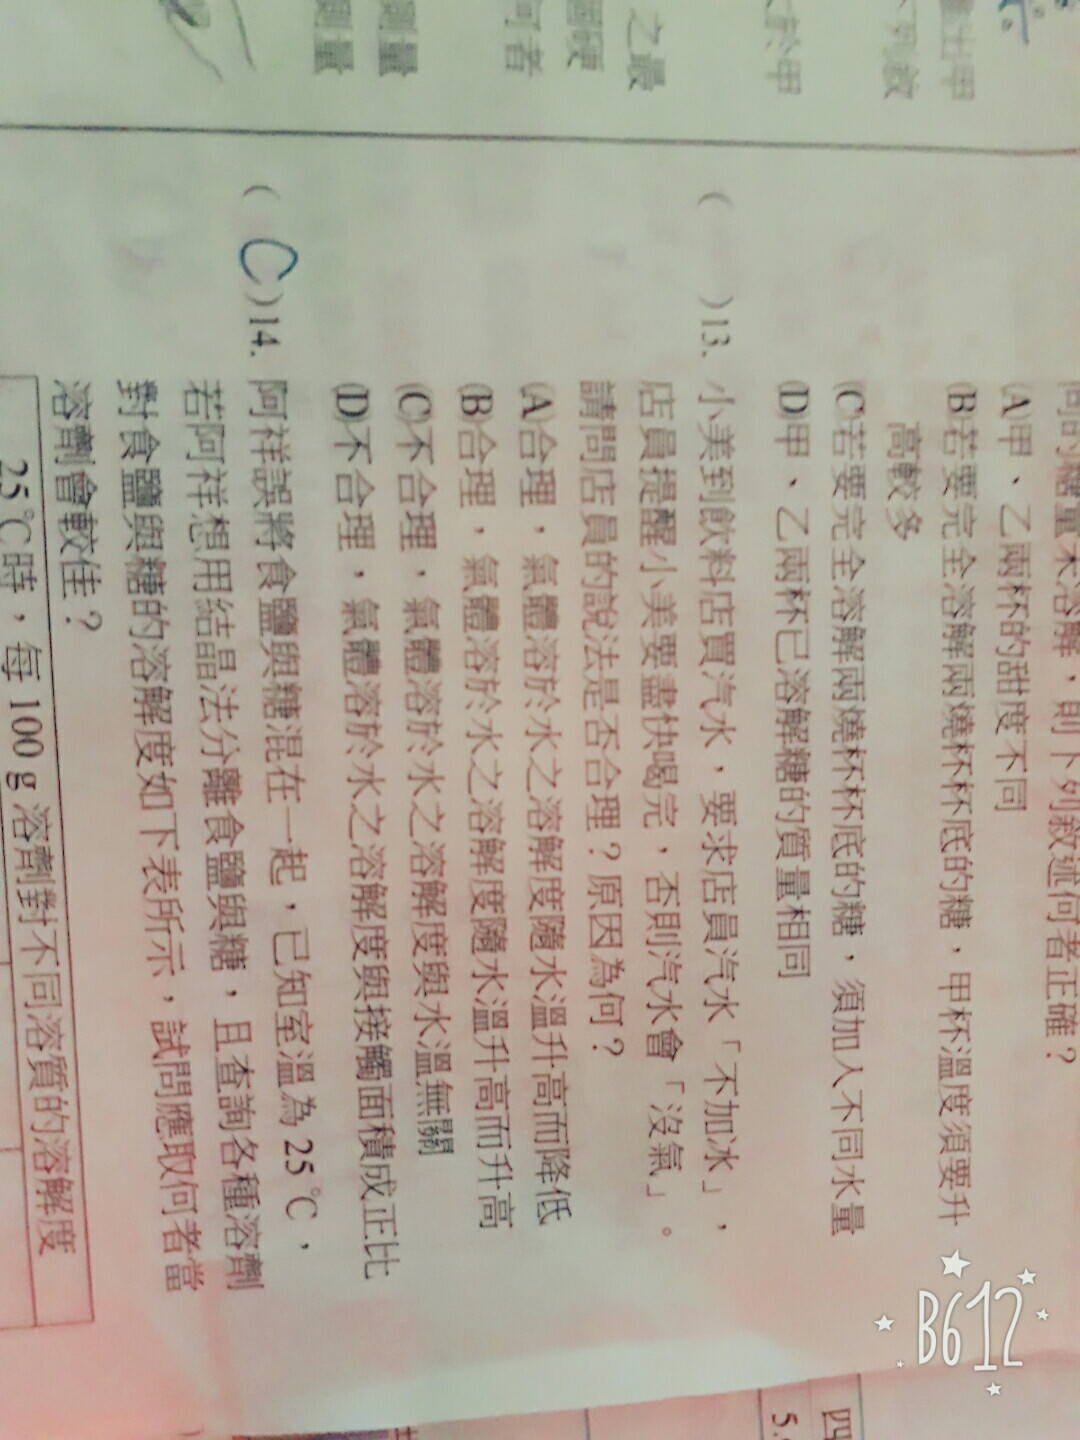 何的糖量未溶解，則下列敘述何者正確？
(A)甲、乙兩杯的甜度不同
(B)若要完全溶解兩燒杯杯底的糖，甲杯溫度須要升
高較多
(C)若要完全溶解兩燒杯杯底的糖，須加入不同水量
(D)甲、乙兩杯已溶解糖的質量相同
(  )13. 小美到飲料店買汽水，要求店員汽水「不加冰」，
店員提醒小美要盡快喝完，否則汽水會「沒氣」。
請問店員的說法是否合理？原因為何？
(A)合理，氣體溶於水之溶解度隨水溫升高而降低
(B)合理，氣體溶於水之溶解度隨水溫升高而升高
(C)不合理，氣體溶於水之溶解度與水溫無關
(D)不合理，氣體溶於水之溶解度與接觸面積成正比
( C )14. 阿祥誤將食鹽與糖混在一起，已知室溫為 25℃，
若阿祥想用結晶法分離食鹽與糖，且查詢各種溶劑
對食鹽與糖的溶解度如下表所示，試問應取何者當
溶劑會較佳？
25℃時，每 100 g 溶劑對不同溶質的溶解度
畫出甲
下列敘
於甲
之最
硬
何者
測量
測量
四
5.
B612